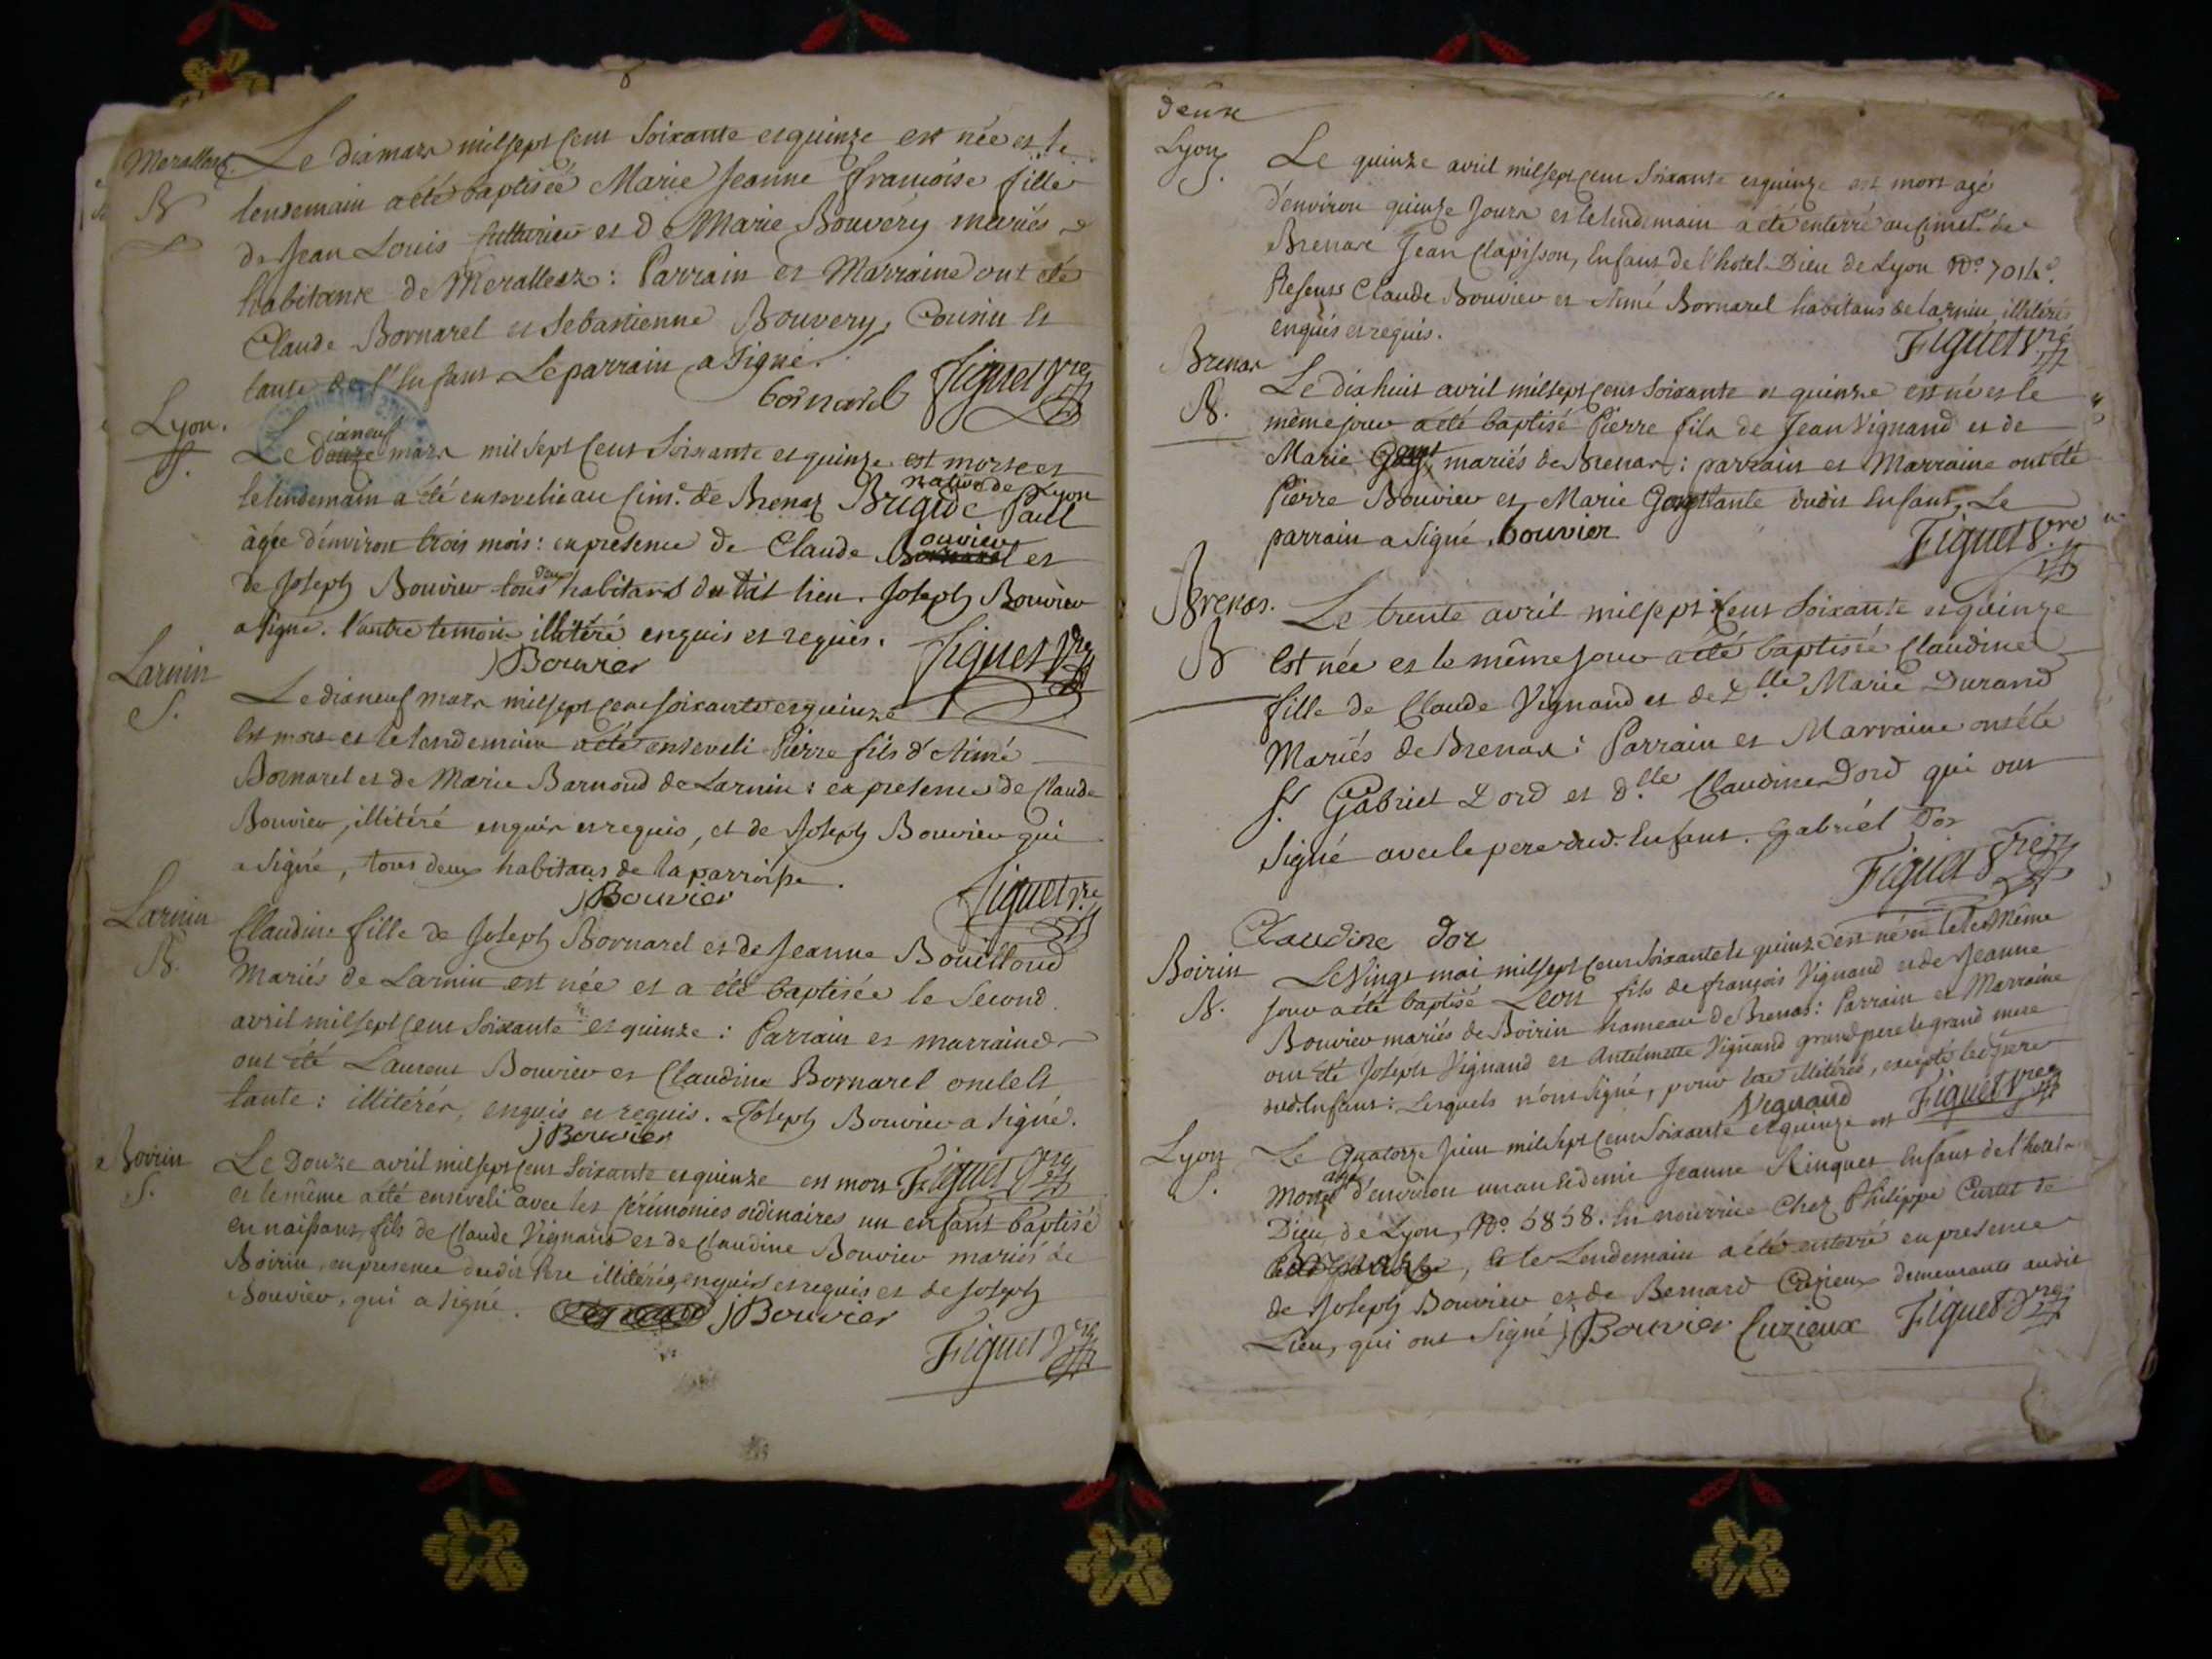 Merallex.
B
Le dix mars mil sept cent Soixante et quinze est née et le
lendemain a été baptisée Marie Jeanne françoise fille
de Jean Louis et D Marie Bouvéry mariés
habitans de Merallex : Parrain et Marraine ont été
Claude Bornarel et Sebastienne Bouvery, Cousin et
tante de l'Enfant. Le parrain a Signé.
bornarel Figuet Vre
Lyon.
S.
ixneuf
Le douze mars mil Sept Cent Soixante et quinze est morte et
le lendemain a été ensevelie au Cim.e de Brenaz Brigide Paule
native de Lyon
âgée d'environ trois mois : en présence de Claude Bornarel et
ouvier
de Joseph Bouvier tous habitans du dit lieu. Joseph Bouvier
deux
a signé. l'autre temoin illitéré enquis et requis.
JBouvier Figuet Vre
Larnin
S.
Le dixneuf mars mil sept cent soixante et quinze
est mort et le lendemain a été enseveli Pierre fils d'Aimé
Bornarel et de Marie Barnoud de Larnin : en presence de Claude
Bouvier, illitéré enquis et requis, et de Joseph Bouvier qui
a Signé, tous deux habitans de la parroisse.
JBouvier Figuet Vre
Larnin
B.
Claudine fille de Joseph Bornarel et de Jeanne Bouilloud
Mariés de Larnin est née et a été baptisée le Second
avril mil sept cent Soixante et quinze : Parrain et marraine
ont été Laurent Bouvier et Claudine Bornarel oncle et
tante : illitérés, enquis et requis. Joseph Bouvier a signé.
JBouvier
Figuet Vre
Boirin
S.
Le Douze avril mil sept cent Soixante et quinze est mort
et le même a été enseveli avec les cérémonies ordinaires un enfant baptisé
en naissant, fils de Claude Vignand et de Claudine Bouvier mariés de
Boirin, en presence dudit Pere illitéré, enquis et requis et de Joseph
Bouvier, qui a signé. JBouvier
Figuet Vre
deux
Lyon
S.
Le quinze avril mil sept cent Soixante et quinze est mort agé
d'environ quinze Jours et le lendemain a été enterré au Cimet.e de
Brenaz Jean Clapisson, Enfant de l'hotel-Dieu de Lyon N.o
Presens Claude Bouvier et Aimé Bornarel habitans de Larnin illitérés
enquis et requis.
Figuet Vre
Brenaz
B.
Le dix huit avril mil sept cent Soixante et quinze est né et le
même jour a été baptisé Pierre fils de Jean Vignand et de
Marie mariés de Brenaz : parrain et Marraine ont été
Pierre Bouvier et Marie tante dudit Enfant. Le
parrain a Signé. bouvier
Figuet Vre
Brenas.
B
Le trente avril mil sept Cent Soixante et quinze
est née et le même jour a été baptisée Claudine
fille de Claude Vignand et de D.lle Marie Durand
Mariés de Brenax : Parrain et Marraine ont été
S.r Gabriel Dord et D.lle Claudine Dord qui ont
Signé avec le pere dud. Enfant. Gabriel Dor
Figuet Vre
Claudine dor
Boirin
B.
Le Vingt mai mil sept cent Soixante et quinze est né et le même
jour a été baptisé Léon fils de françois Vignand et de Jeanne
Bouvier mariés de Boirin hameau de Brenas : Parrain et Marraine
ont été Joseph Vignand et Antelmette Vignand grand pere et grand mere
dud. Enfant : Lesquels n'ont Signé, pour être illitérés, excepté led. pere
Vignand Figuet Vre
Lyon
S.
Le Quatorze Juin mil Sept cent Soixante et quinze est
Morte agée d'environ un an et demi Jeanne Rinquet Enfant de l'hotel-
Dieu de Lyon, N.o 5858. En nourrice Chez Philippe Curtet de
, et le Lendemain a été enterré en presence
de Joseph Bouvier et de Bernard Cuzieux demeurants audit
Lieu, qui ont Signé JBouvier Cuzieux Figuet Vre